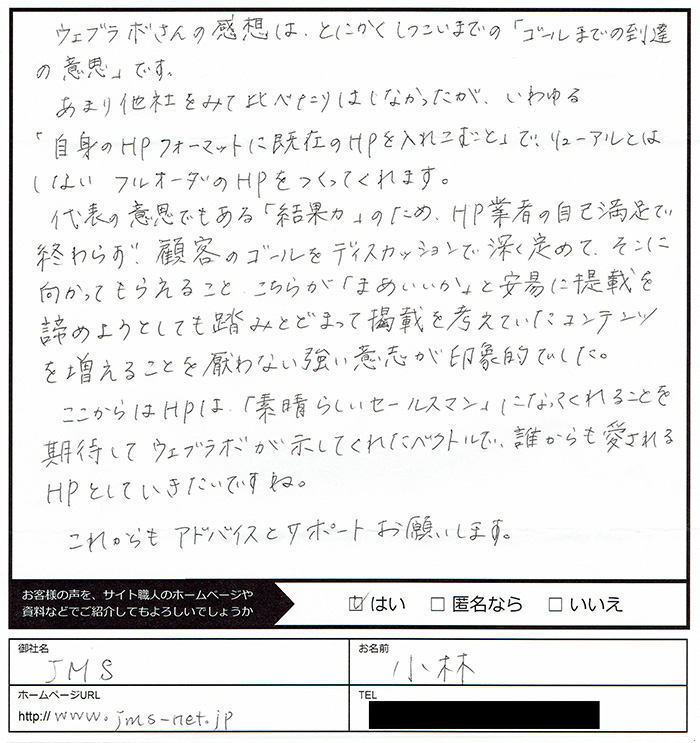 ウェブラボさんの感想は、とにかくしつこいまでの「ゴールまでの到達
の意思」です。
あまり他社をみて比べたりはしなかったが、いわゆる
「自身のHPフォーマットに既在のHPを入れこむこと」で、リューアルとは
しない フルオーダのHPをつくってくれます。
代表の意思でもある「結果力」のため、HP業者の自己満足で
終わらず! 顧客のゴールをディスカッションで深く定めて、そこに
向かってもらえること、こちらが「まあいいか」と安易に掲載を
諦めようとしても踏みとどまって掲載を考えていたコンテンツ
を増えることを厭わない強い意志が印象的でした。
ここからはHPは、「素晴らしいセールスマン」になってくれることを
期待して ウェブラボが示してくれたベクトルで、誰からも愛される
HPとしていきたいですね。
これからも アドバイスとサポートお願いします。
お客様の声を、サイト職人のホームページや
資料などでご紹介してもよろしいでしょうか
☑ はい □ 匿名なら □ いいえ
御社名 お名前
JMS 小林
ホームページURL TEL
http://www.jms-net.jp